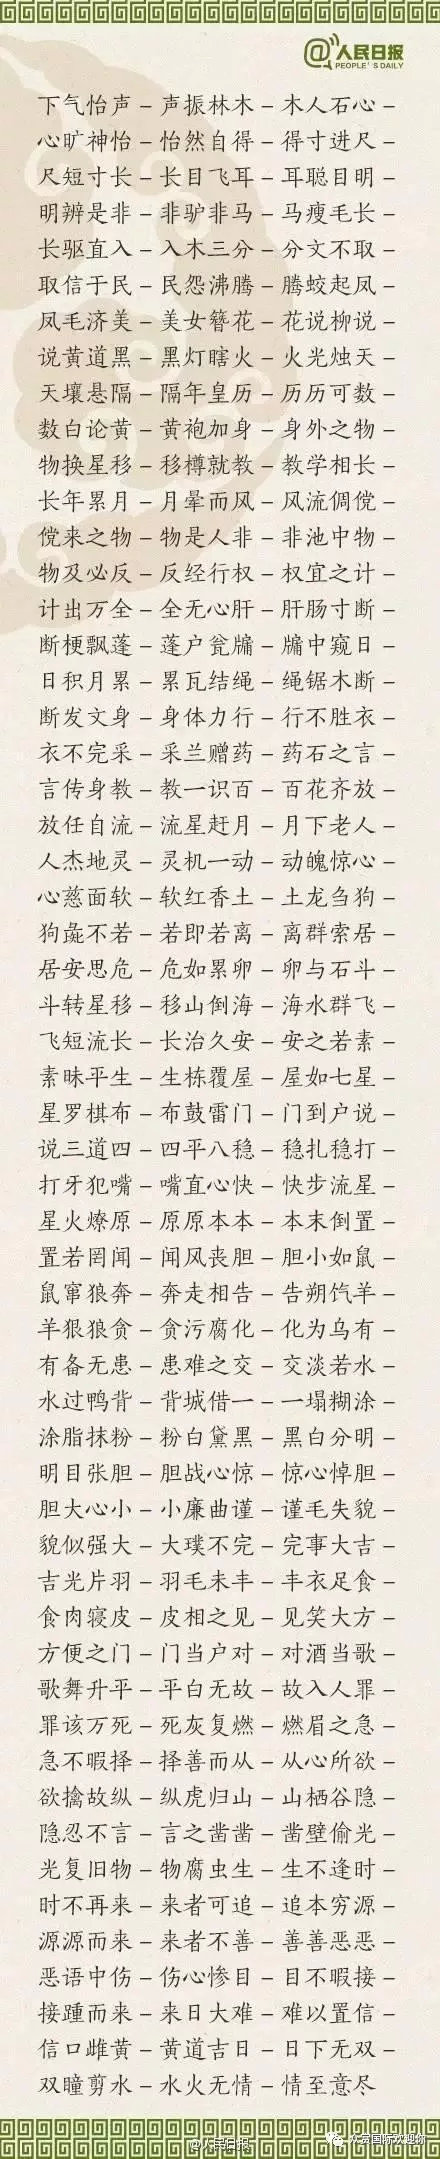 @人民日报
PEOPLE'S DAILY
下气怡声－声振林木－木人石心－
心旷神怡－怡然自得－得寸进尺－
尺短寸长－长目飞耳－耳聪目明－
明辨是非－非驴非马－马瘦毛长－
长驱直入－入木三分－分文不取－
取信于民－民怨沸腾－腾蛟起凤－
凤毛济美－美女簪花－花说柳说－
说黄道黑－黑灯瞎火－火光烛天－
天壤悬隔－隔年皇历－历历可数－
数白论黄－黄袍加身－身外之物－
物换星移－移樽就教－教学相长－
长年累月－月晕而风－风流倜傥－
傥来之物－物是人非－非池中物－
物及必反－反经行权－权宜之计－
计出万全－全无心肝－肝肠寸断－
断梗飘蓬－蓬户瓮牖－牖中窥日－
日积月累－累瓦结绳－绳锯木断－
断发文身－身体力行－行不胜衣－
衣不完采－采兰赠药－药石之言－
言传身教－教一识百－百花齐放－
放任自流－流星赶月－月下老人－
人杰地灵－灵机一动－动魄惊心－
心慈面软－软红香土－土龙刍狗－
狗彘不若－若即若离－离群索居－
居安思危－危如累卵－卵与石斗－
斗转星移－移山倒海－海水群飞－
飞短流长－长治久安－安之若素－
素昧平生－生栋覆屋－屋如七星－
星罗棋布－布鼓雷门－门到户说－
说三道四－四平八稳－稳扎稳打－
打牙犯嘴－嘴直心快－快步流星－
星火燎原－原原本本－本末倒置－
置若罔闻－闻风丧胆－胆小如鼠－
鼠窜狼奔－奔走相告－告朔饩羊－
羊狠狼贪－贪污腐化－化为乌有－
有备无患－患难之交－交淡若水－
水过鸭背－背城借一－一塌糊涂－
涂脂抹粉－粉白黛黑－黑白分明－
明目张胆－胆战心惊－惊心悼胆－
胆大心小－小廉曲谨－谨毛失貌－
貌似强大－大璞不完－完事大吉－
吉光片羽－羽毛未丰－丰衣足食－
食肉寝皮－皮相之见－见笑大方－
方便之门－门当户对－对酒当歌－
歌舞升平－平白无故－故入人罪－
罪该万死－死灰复燃－燃眉之急－
急不暇择－择善而从－从心所欲－
欲擒故纵－纵虎归山－山栖谷隐－
隐忍不言－言之凿凿－凿壁偷光－
光复旧物－物腐虫生－生不逢时－
时不再来－来者可追－追本穷源－
源源而来－来者不善－善善恶恶－
恶语中伤－伤心惨目－目不暇接－
接踵而来－来日大难－难以置信－
信口雌黄－黄道吉日－日下无双－
双瞳剪水－水火无情－情至意尽
@人民日报
众赏国际欢迎你